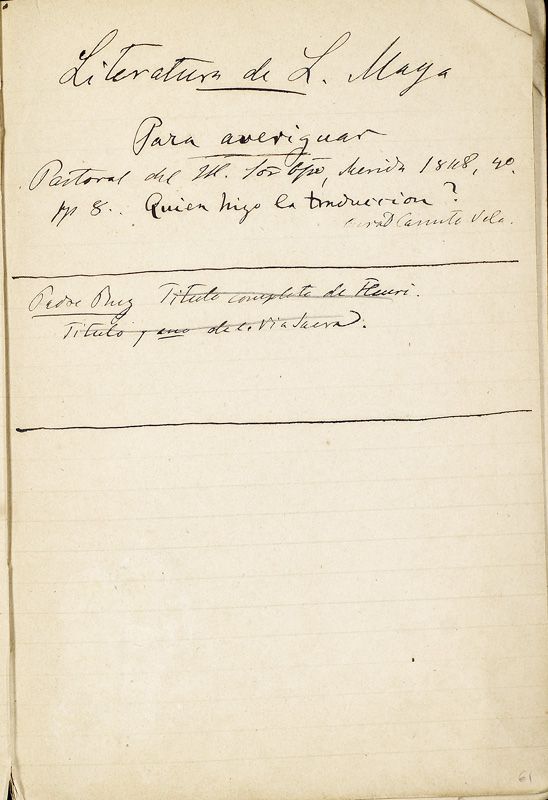 Literatura de L. Maya
Para averiguar
Pastoral del Yll. Sor Obpo, Merida 1848, 4o.
pp 8. Quien hizo la traduccion?
cura D Canuto Vela.
Pedro Ruz Titulo completo de Fleuri.
Titulo y ano de la Via Sacra.
61